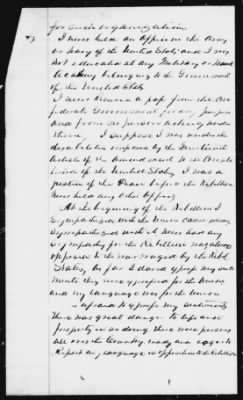 for such organization
I never held an Office in the Army
or Navy of the United States and I was
not educated at any Military or Naval
Academy belonging to the Government
of the United States
I never received a pass from the Con
federate Government or any person
And from no person acting under
them. I suppose I was under the
disabilities imposed by the Fourteenth
Article of the Amendment to the Consti
tution of the United States, I was a
Justice of the Peace before the Rebellion
Never held any other Office
At the beginning of the Rebellion I
Sympathized with the Union Cause
Sympathized with it Never had any
sympathy for the Rebellion was always
opposed to the war waged by the Rebel
States, As far I dared express my senti
ments, they were expressed for the Union
and my language was for the Union
afraid to express my sentiments
there was great danger to life and
property in so doing there were persons
all over the Country ready and eager to
Report any language in opposition to the Rebellion